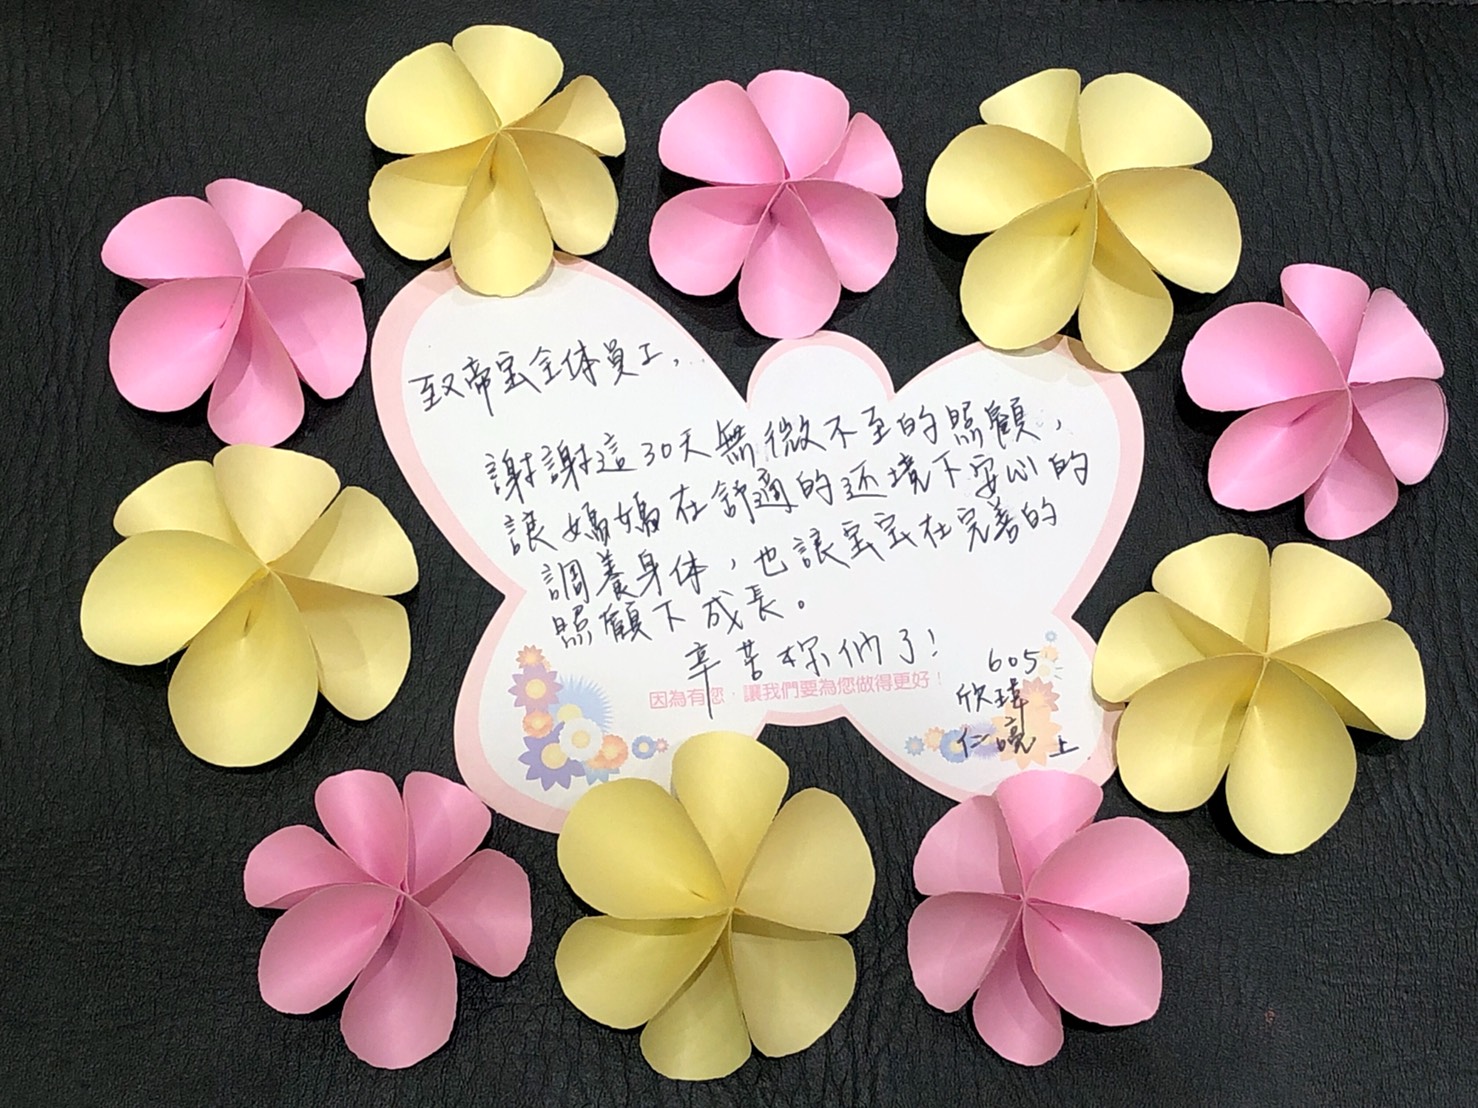 致帝宝全体員工，
謝謝這30天無微不至的照顧，
讓媽媽在舒適的还境下安心的
調養身体，也讓宝宝在完善的
照顧下成長。
辛苦你們了！
因為有您，讓我們要為您做得更好！
605
欣瑋
仁亮 上